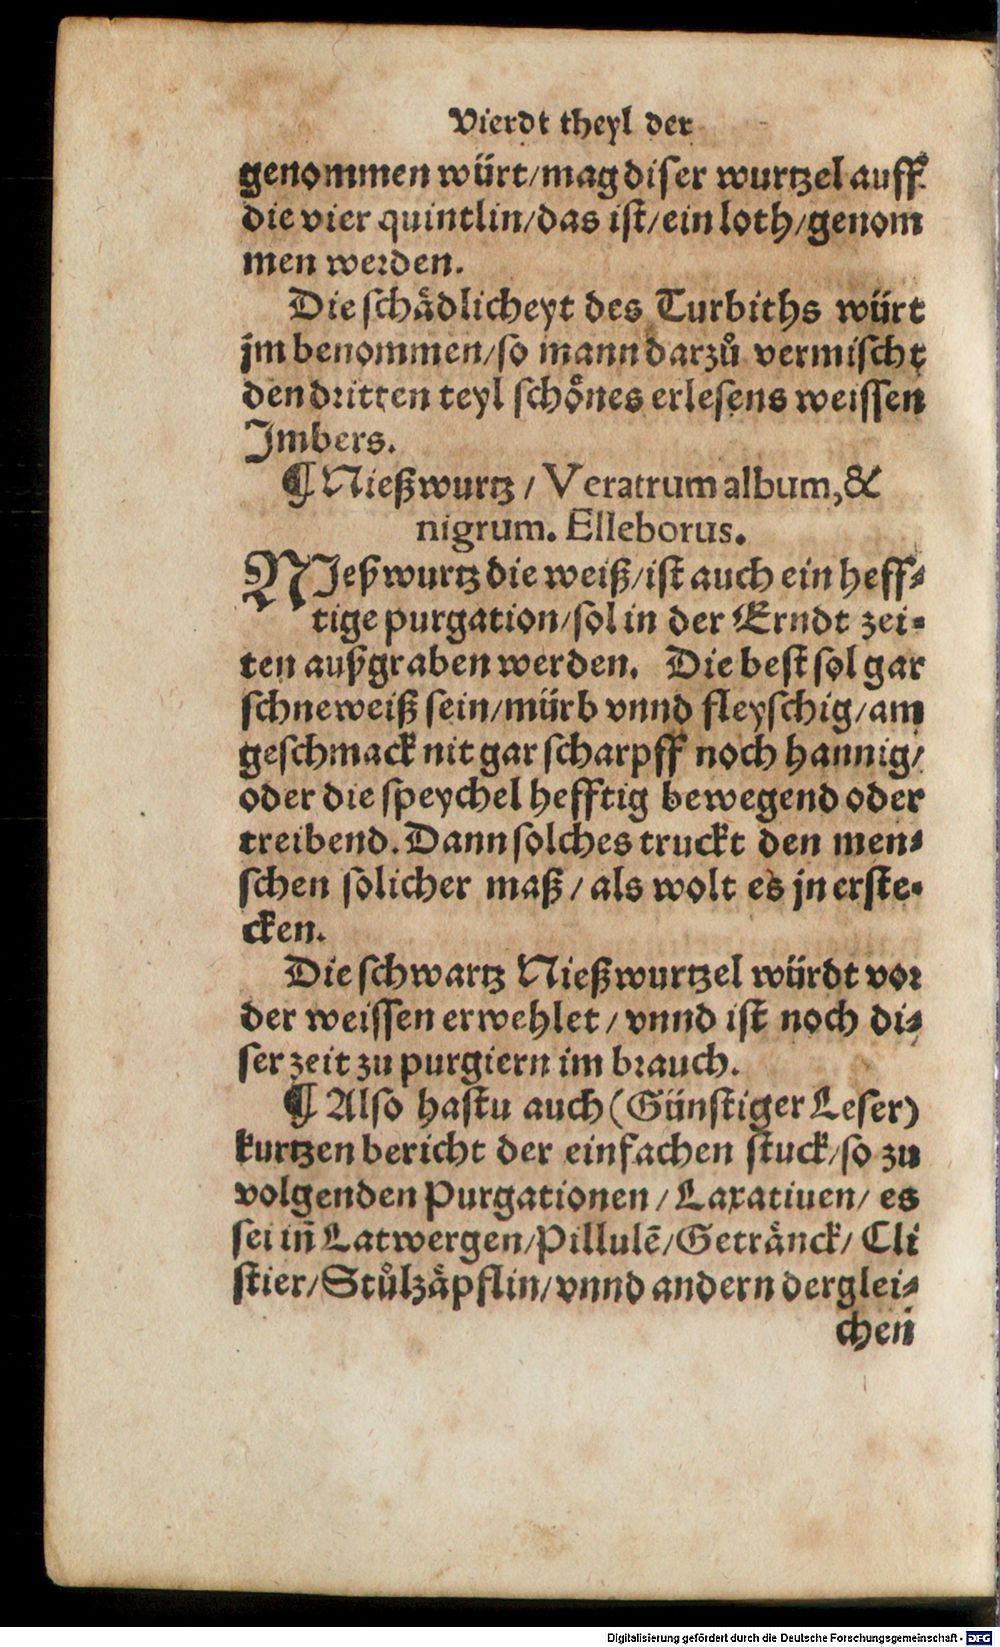 Vierdt theyl der
genommen würt/mag diser wurtzel auff
die vier quintlin/das ist/ein loth/genom
men werden.
Die schaͤdlicheyt des Turbiths würt
jm benommen/so mann darzuͦ vermischt
den dritten teyl schoͤnes erlesens weissen
Jmbers.
¶ Nießwurtz / Veratrum album, &
nigrum. Elleborus.
NJeßwurtz die weiß/ist auch ein heff⸗
tige purgation/sol in der Erndt zei⸗
ten außgraben werden. Die best sol gar
schneweiß sein/mürb vnnd fleyschig/am
geschmack nit gar scharpff noch hannig/
oder die speychel hefftig bewegend oder
treibend. Dann solches truckt den men⸗
schen solicher maß / als wolt es jn erste⸗
cken.
Die schwartz Nießwurtzel würdt vor
der weissen erwehlet / vnnd ist noch di⸗
ser zeit zu purgiern im brauch.
¶ Also hastu auch (Günstiger Leser)
kurtzen bericht der einfachen stuck/so zu
volgenden Purgationen / Laxatiuen/ es
sei in̄ Latwergen/Pillulē/Getraͤnck/ Cli
stier/Stuͦlzaͤpflin/vnnd andern derglei⸗
chen
Digitalisierung gefördert durch die Deutsche Forschungsgemeinschaft - DFG